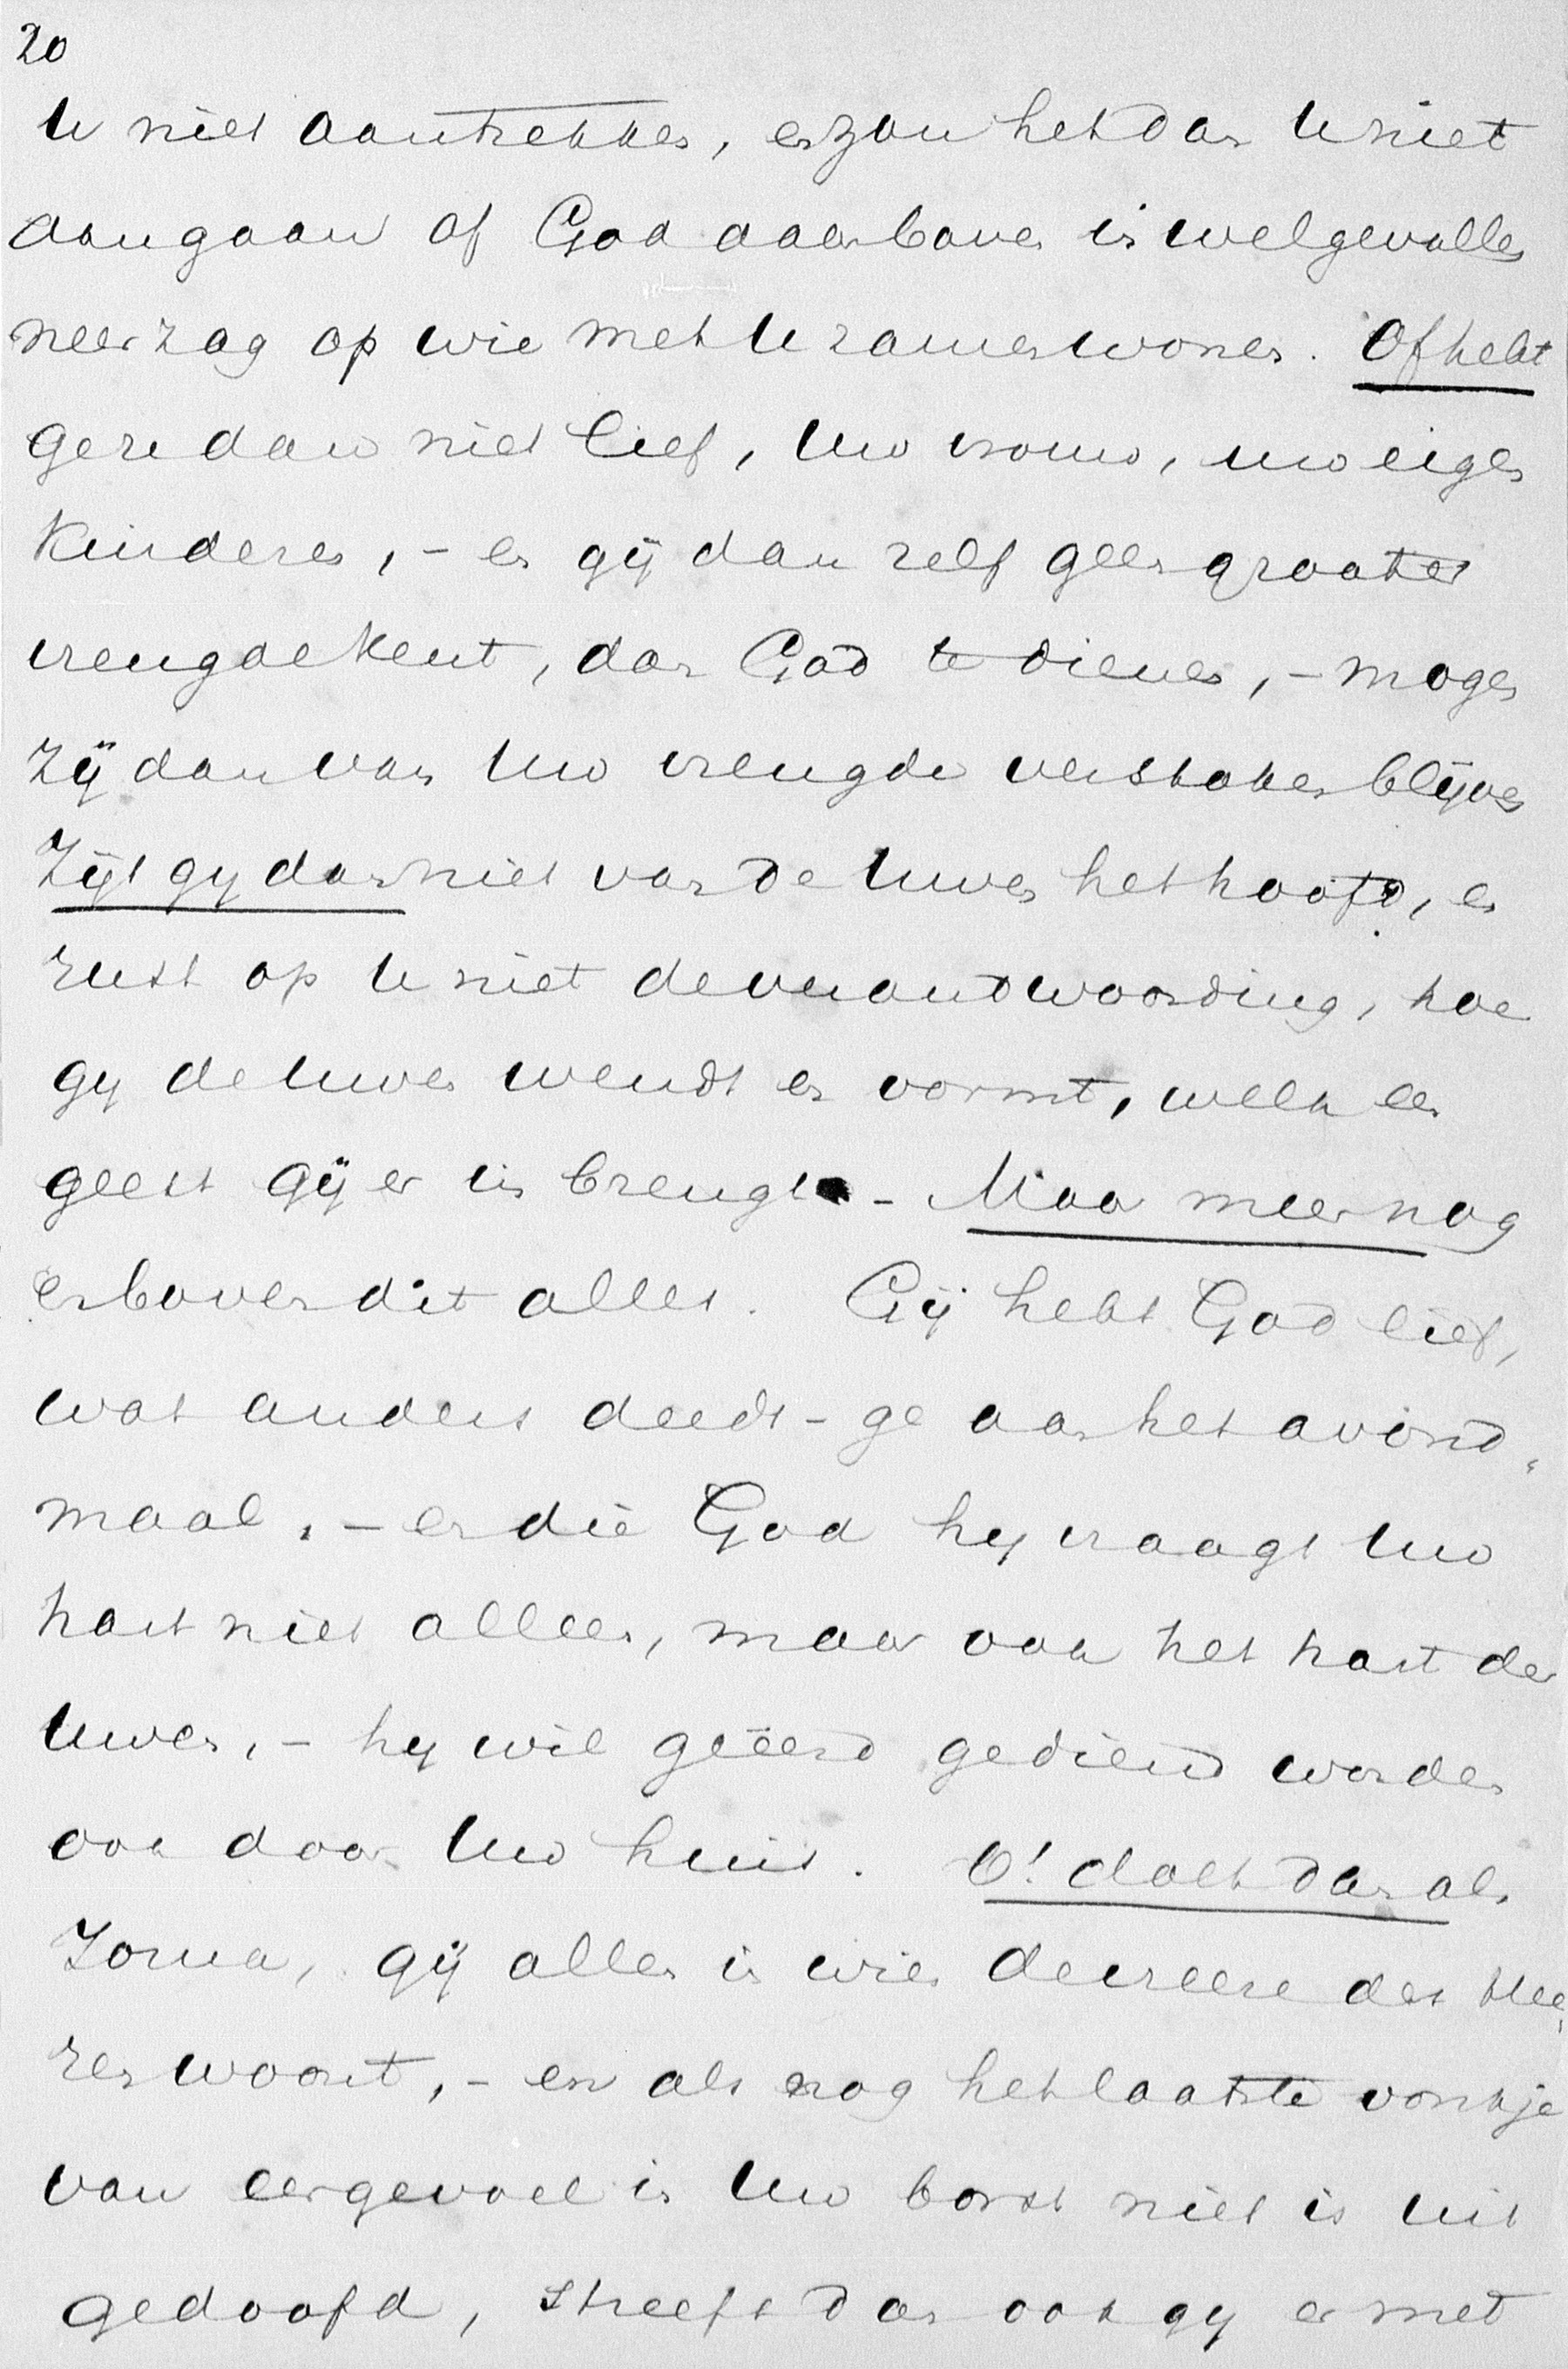 20
U niet aantrekken, en zou het dan U niet
aangaan of God daarboven in welgevallen
neerzag op wie met U zamenwonen. Of hebt
ge ze dan niet lief, Uw vrouw, uw eigen
kinderen, - en gij dan zelf geen grooter
vreugde kent, dan God te dienen, - mogen
zij dan van Uw vreugde verstoken blijven
Zijt gij dan niet van de Uwen het hoofd, en
rust op U niet de verantwoording, hoe
gij de Uwen wendt en vormt, welk een
geest gij er in brengt - Maar meer nog
en boven dit alles. Gij hebt God lief,
wat anders deedt - ge aan het avond„
maal, - en die God hij vraagt Uw
hart niet alleen, maar ook het hart der
Uwen, - hij wil geëerd gediend worden
ook door Uw huis. O! doet dan als
Jozua, gij allen in wien de vreeze des Hee„
ren woont, - en als nog het laatste vonkje
van eergevoel in Uw borst niet is uit
gedoofd, streeft dan ook gij er met